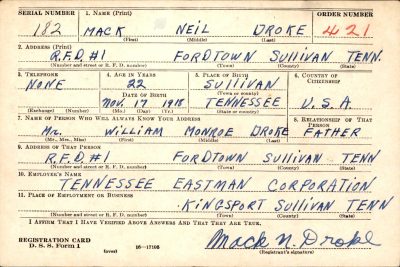 SERIAL NUMBER 1. NAME (Print) ORDER NUMBER
182 MACK NEIL DROKE 421
(First) (Middle) (Last)
2. ADDRESS (Print)
R.F.D. #1 FORDTOWN SULLIVAN TENN.
(Number and street or R. F. D. number) (Town) (County) (State)
3. TELEPHONE 4. AGE IN YEARS 5. PLACE OF BIRTH 6. COUNTRY OF CITIZENSHIP
NONE 22 SULLIVAN
DATE OF BIRTH (Town or county)
NOV. 17 1918 TENNESSEE U.S.A.
(Exchange) (Number) (Mo.) (Day) (Yr.) (State or country)
7. NAME OF PERSON WHO WILL ALWAYS KNOW YOUR ADDRESS 8. RELATIONSHIP OF THAT PERSON
Mr. WILLIAM MONROE DROKE FATHER
(Mr., Mrs., Miss) (First) (Middle) (Last)
9. ADDRESS OF THAT PERSON
R.F.D. #1 FORDTOWN SULLIVAN TENN
(Number and street or R. F. D. number) (Town) (County) (State)
10. EMPLOYER'S NAME
TENNESSEE EASTMAN CORPORATION
11. PLACE OF EMPLOYMENT OR BUSINESS
KINGSPORT SULLIVAN TENN
(Number and street or R. F. D. number) (Town) (County) (State)
I AFFIRM THAT I HAVE VERIFIED ABOVE ANSWERS AND THAT THEY ARE TRUE.
REGISTRATION CARD
D. S. S. Form 1 (over) 16—17105 Mack N. Droke
(Registrant's signature)